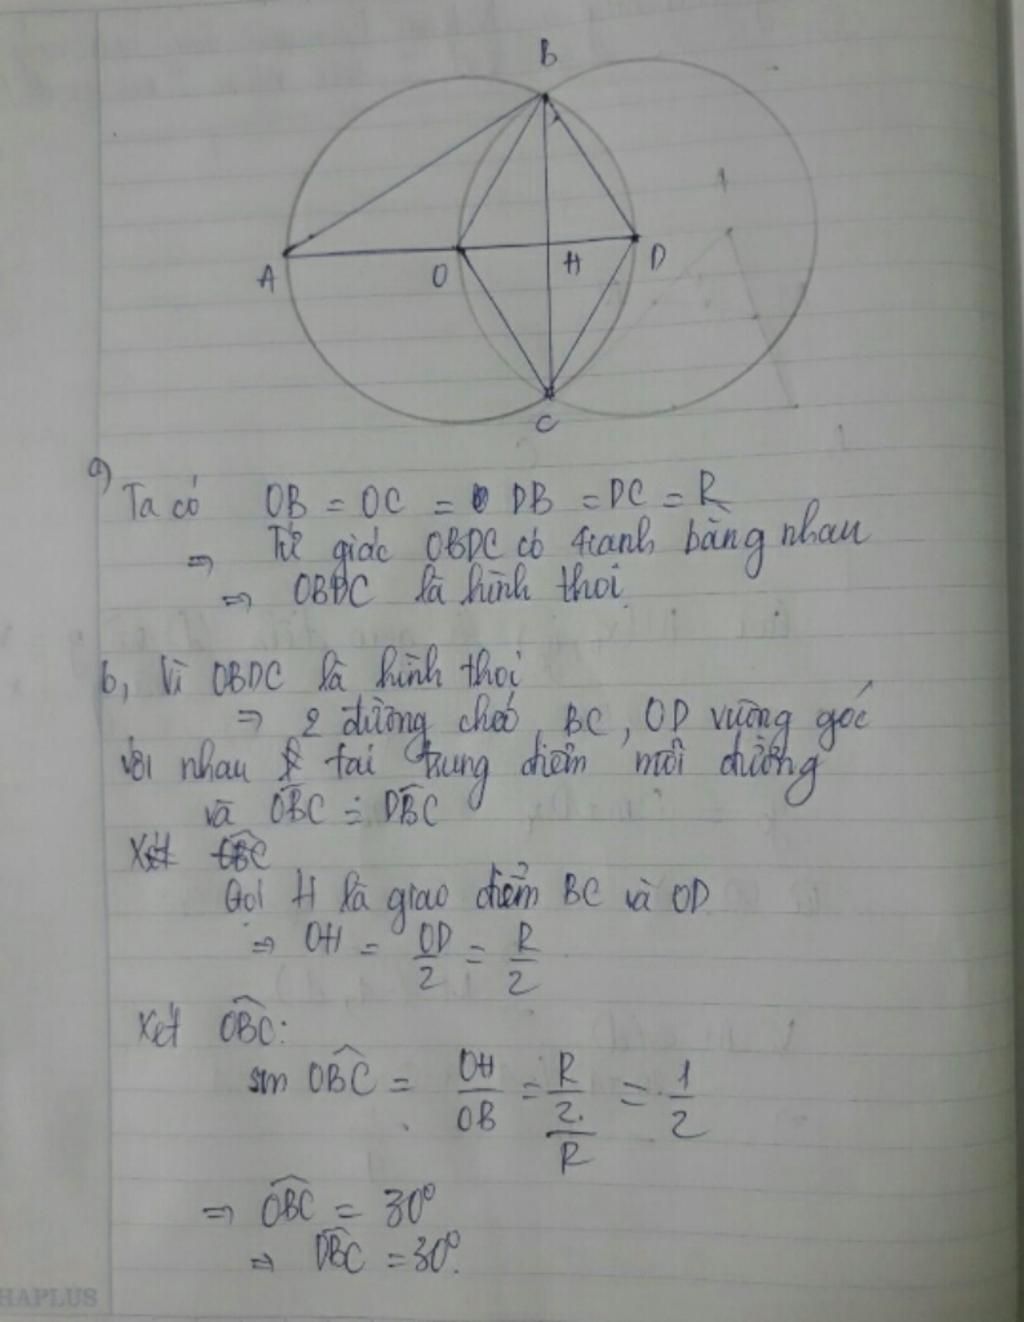 B
A
O
H
D
C
a)
Ta có OB = OC = DB = DC = R
⇒ Tứ giác OBDC có 4 cạnh bằng nhau
⇒ OBDC là hình thoi
b, Vì OBDC là hình thoi
⇒ 2 đường chéo BC, OD vuông góc
với nhau tại trung điểm mỗi đường
và OBC = DBC
Xét OBC
Gọi H là giao điểm BC và OD
⇒ OH = OD/2 = R/2
Xét OBC:
sin OBC = OH/OB = R/2/R = 1/2
⇒ OBC = 30°
⇒ DBC = 30°.
HAPLUS